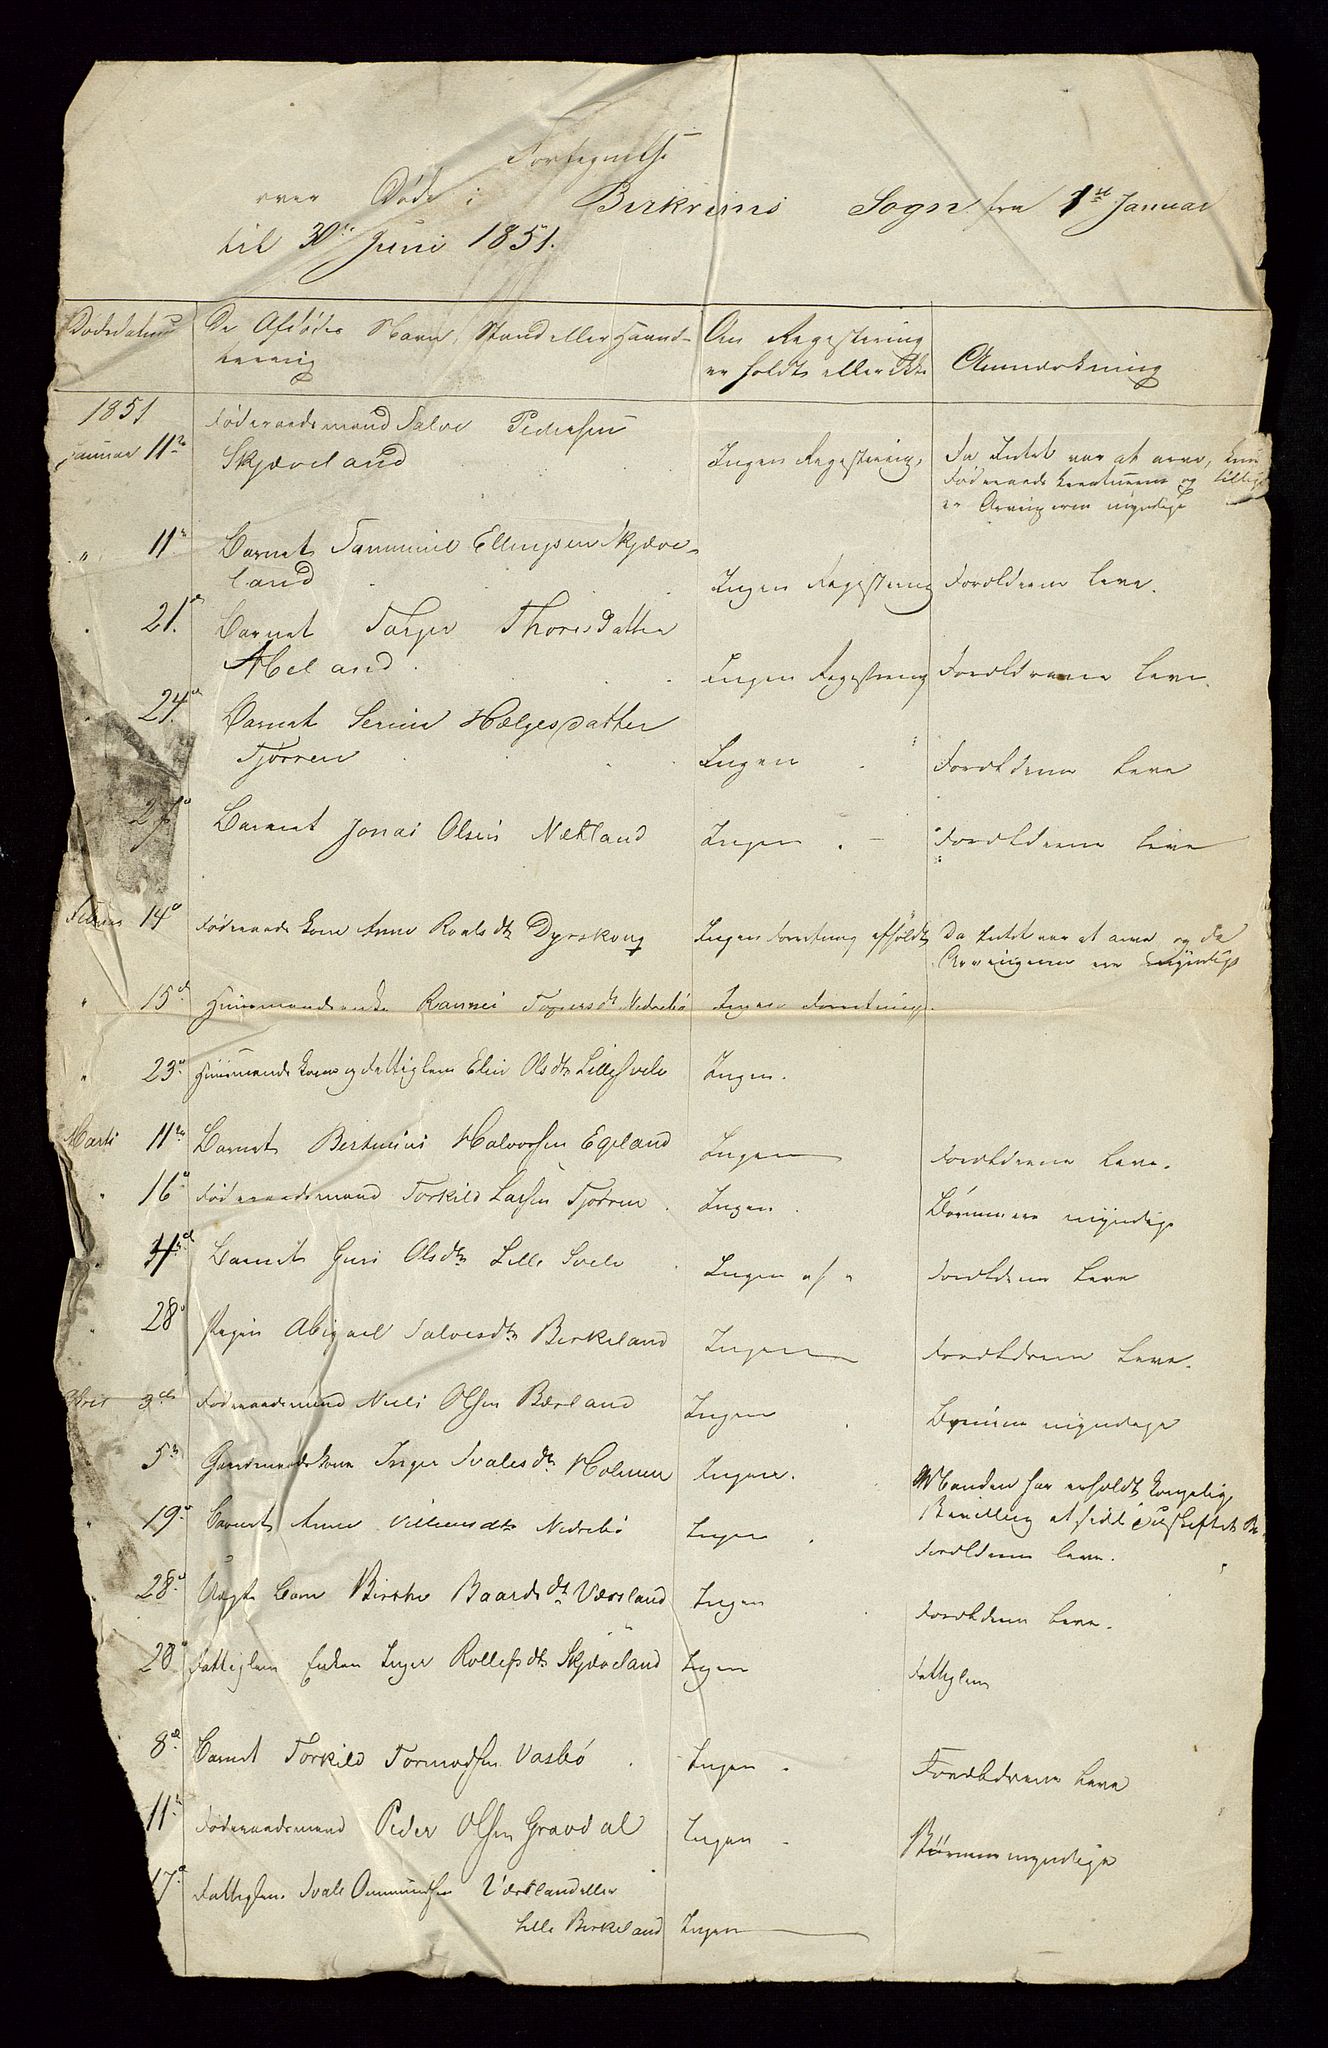 Fortegnelse
over Døde i Birkrims Sogn fra 1ste Januar
til 30te Juni 1851.
Dødsdatum
De Afdødes Navn, Stand eller Haand-
tering
Om Registering
er holdt eller ikke
Anmærkning
1851
Januar 11te
Føderaadsmand Salve Pedersen
Skjæveland
Ingen Registering,
Da Intet var at arve,
Føderaads og tillige
er Arvingerne myndige
" 11te
Barnet Tammine Ellingsen Skjæve-
land
Ingen Registering
Forældrene leve.
21de
Barnet Thoresdatter
Abeland
Ingen Registering
Forældrene leve.
24de
Barnet Serine Helgesdatter
Tjørren
Ingen
Forældrene leve
27de
Barnet Jonas Olsen Netland
Ingen
Forældrene leve
Februar 14de
Føderaads Kone Anne Roalsdtr Dyrskoug
Ingen Forretning afholdt
Da Intet var at arve og da
Arvingerne ere myndige
" 15de
Huusmandsenke Rannei Nedrebø
Ingen Forretning.
" 23de
Huusmands Kone og fattiglem Elin Olsdtr Lille Svele
Ingen.
Marts 11te
Barnet Bertinius Halvorsen Egeland
Ingen
Forældrene leve.
" 16de
Føderaadsmand Torkild Larsen Tjørren
Ingen
Børnene myndige
Barnet Guri Olsdtr Lille Svele
Ingen
Forældrene leve
" 28de
Pigen Abigael Salvesdtr Birkeland
Ingen
Forældrene leve.
April 3die
Føderaadsmand Niels Olsen Bærland
Ingen
Børnene myndige
5te
Gaardmandskone Inger Svalesdtr Holmen
Ingen.
Manden har erholdt kongelig
Bevilling at sidde i uskiftet Bo
19de
Barnet Anne Villumsdtr Nedrebø
Ingen
Forældrene leve.
28de
Barn Birthe Baardsdtr Værsland
Ingen
Forældrene leve.
28de
Fattiglem Enken Inger Rollefsdtr Skjæveland
Ingen
Fattiglem
8de
Barnet Torkild Tormodsen Vasbø
Ingen
Forældrene leve
11te
Føderaadsmand Peder Olsen Gravdal
Ingen
Børnene myndige
17de
Fattiglem Svale Ommundsen Værsland eller
Lille Birkeland
Ingen